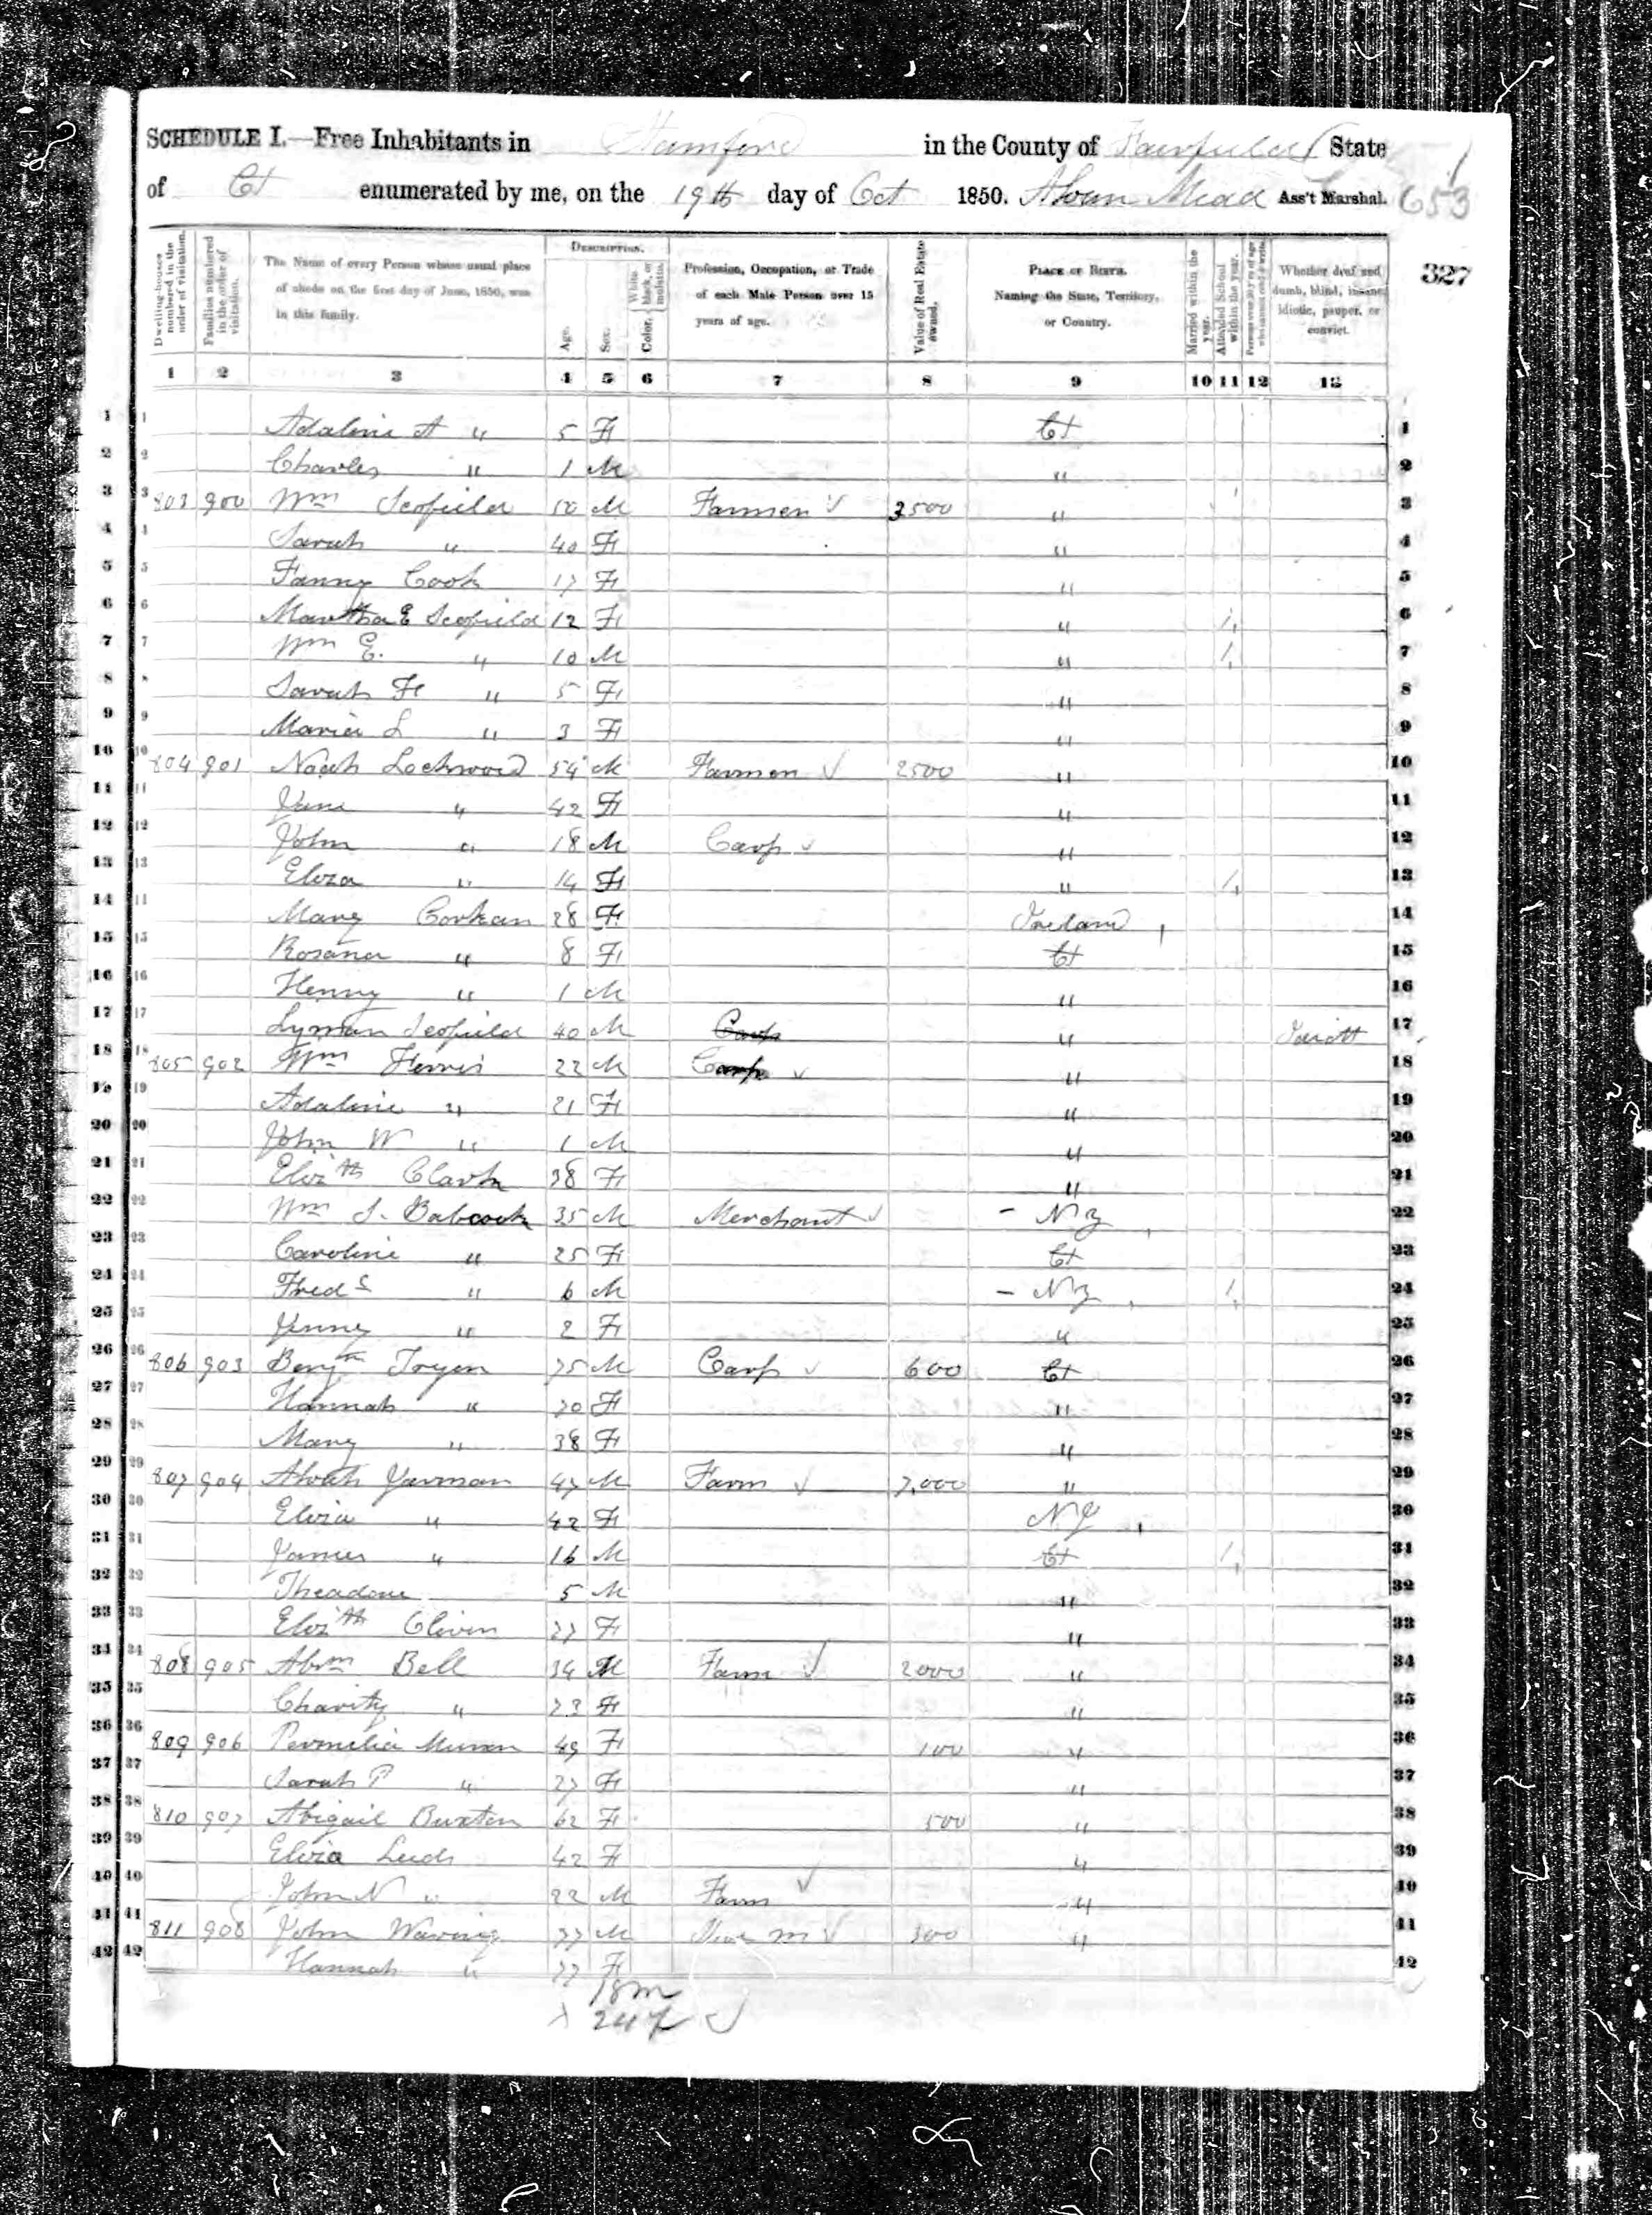 SCHEDULE I.—Free Inhabitants in Stamford in the County of Fairfield State
of Ct enumerated by me, on the 19th day of Oct 1850. Alvan Mead Ass't Marshal. 653
327
Dwelling-houses numbered in the order of visitation.
Families numbered in the order of visitation.
The Name of every Person whose usual place of abode on the first day of June, 1850, was in this family.
Description.
Age.
Sex.
Color, White, black, or mulatto.
Profession, Occupation, or Trade of each Male Person over 15 years of age.
Value of Real Estate owned.
Place of Birth. Naming the State, Territory, or Country.
Married within the year.
Attended School within the year.
Persons over 20 y'rs of age who cannot read & write.
Whether deaf and dumb, blind, insane, idiotic, pauper, or convict.
1 2 3 4 5 6 7 8 9 10 11 12 13
1 1 Adaline A " 5 F Ct 1
2 2 Charles " 1 M " 2
3 3 803 900 Wm Scofield 50 M Farmer √ 3500 " 3
4 4 Sarah " 40 F " 4
5 5 Fanny Cook 17 F " 5
6 6 Martha E Scofield 12 F " 1, 6
7 7 Wm E. " 10 M " 1, 7
8 8 Sarah F " 5 F " 8
9 9 Maria L " 3 F " 9
10 10 804 901 Noah Lockwood 54 M Farmer √ 2500 " 10
11 11 Jane " 42 F " 11
12 12 John " 18 M Carp √ " 12
13 13 Eliza " 14 F " 1, 13
14 14 Mary Corkan 28 F Ireland 14
15 15 Rosana " 8 F Ct 15
16 16 Henry " 1 M " 16
17 17 Lyman Scofield 40 M Carp " Idiott 17
18 18 805 902 Wm Ferris 22 M Carp √ " 18
19 19 Adaline " 21 F " 19
20 20 John W " 1 M " 20
21 21 Eliz'th Clark 38 F " 21
22 22 Wm S. Babcock 35 M Merchant √ - N Y 22
23 23 Caroline " 25 F Ct 23
24 24 Fred S " 6 M - N Y 1, 24
25 25 Jenny " 2 F " 25
26 26 806 903 Benjn Tryon 75 M Carp √ 600 Ct 26
27 27 Hannah " 70 F " 27
28 28 Mary " 38 F " 28
29 29 807 904 Alvah Jarman 47 M Farm √ 7,000 " 29
30 30 Eliza " 42 F N Y 30
31 31 James " 16 M Ct 1, 31
32 32 Theadore 5 M " 32
33 33 Eliz'th Oliver 77 F " 33
34 34 808 905 Abrm Bell 34 M Farm √ 2000 " 34
35 35 Charity " 23 F " 35
36 36 809 906 Permelia 49 F 100 " 36
37 37 Sarah P " 27 F " 37
38 38 810 907 Abigail Buxton 62 F 500 " 38
39 39 Eliza Leeds 42 F " 39
40 40 John N " 22 M Farm √ " 40
41 41 811 908 John Waring 77 M Shoe m √ 300 " 41
42 42 Hannah " 77 F 42
18m
24f √